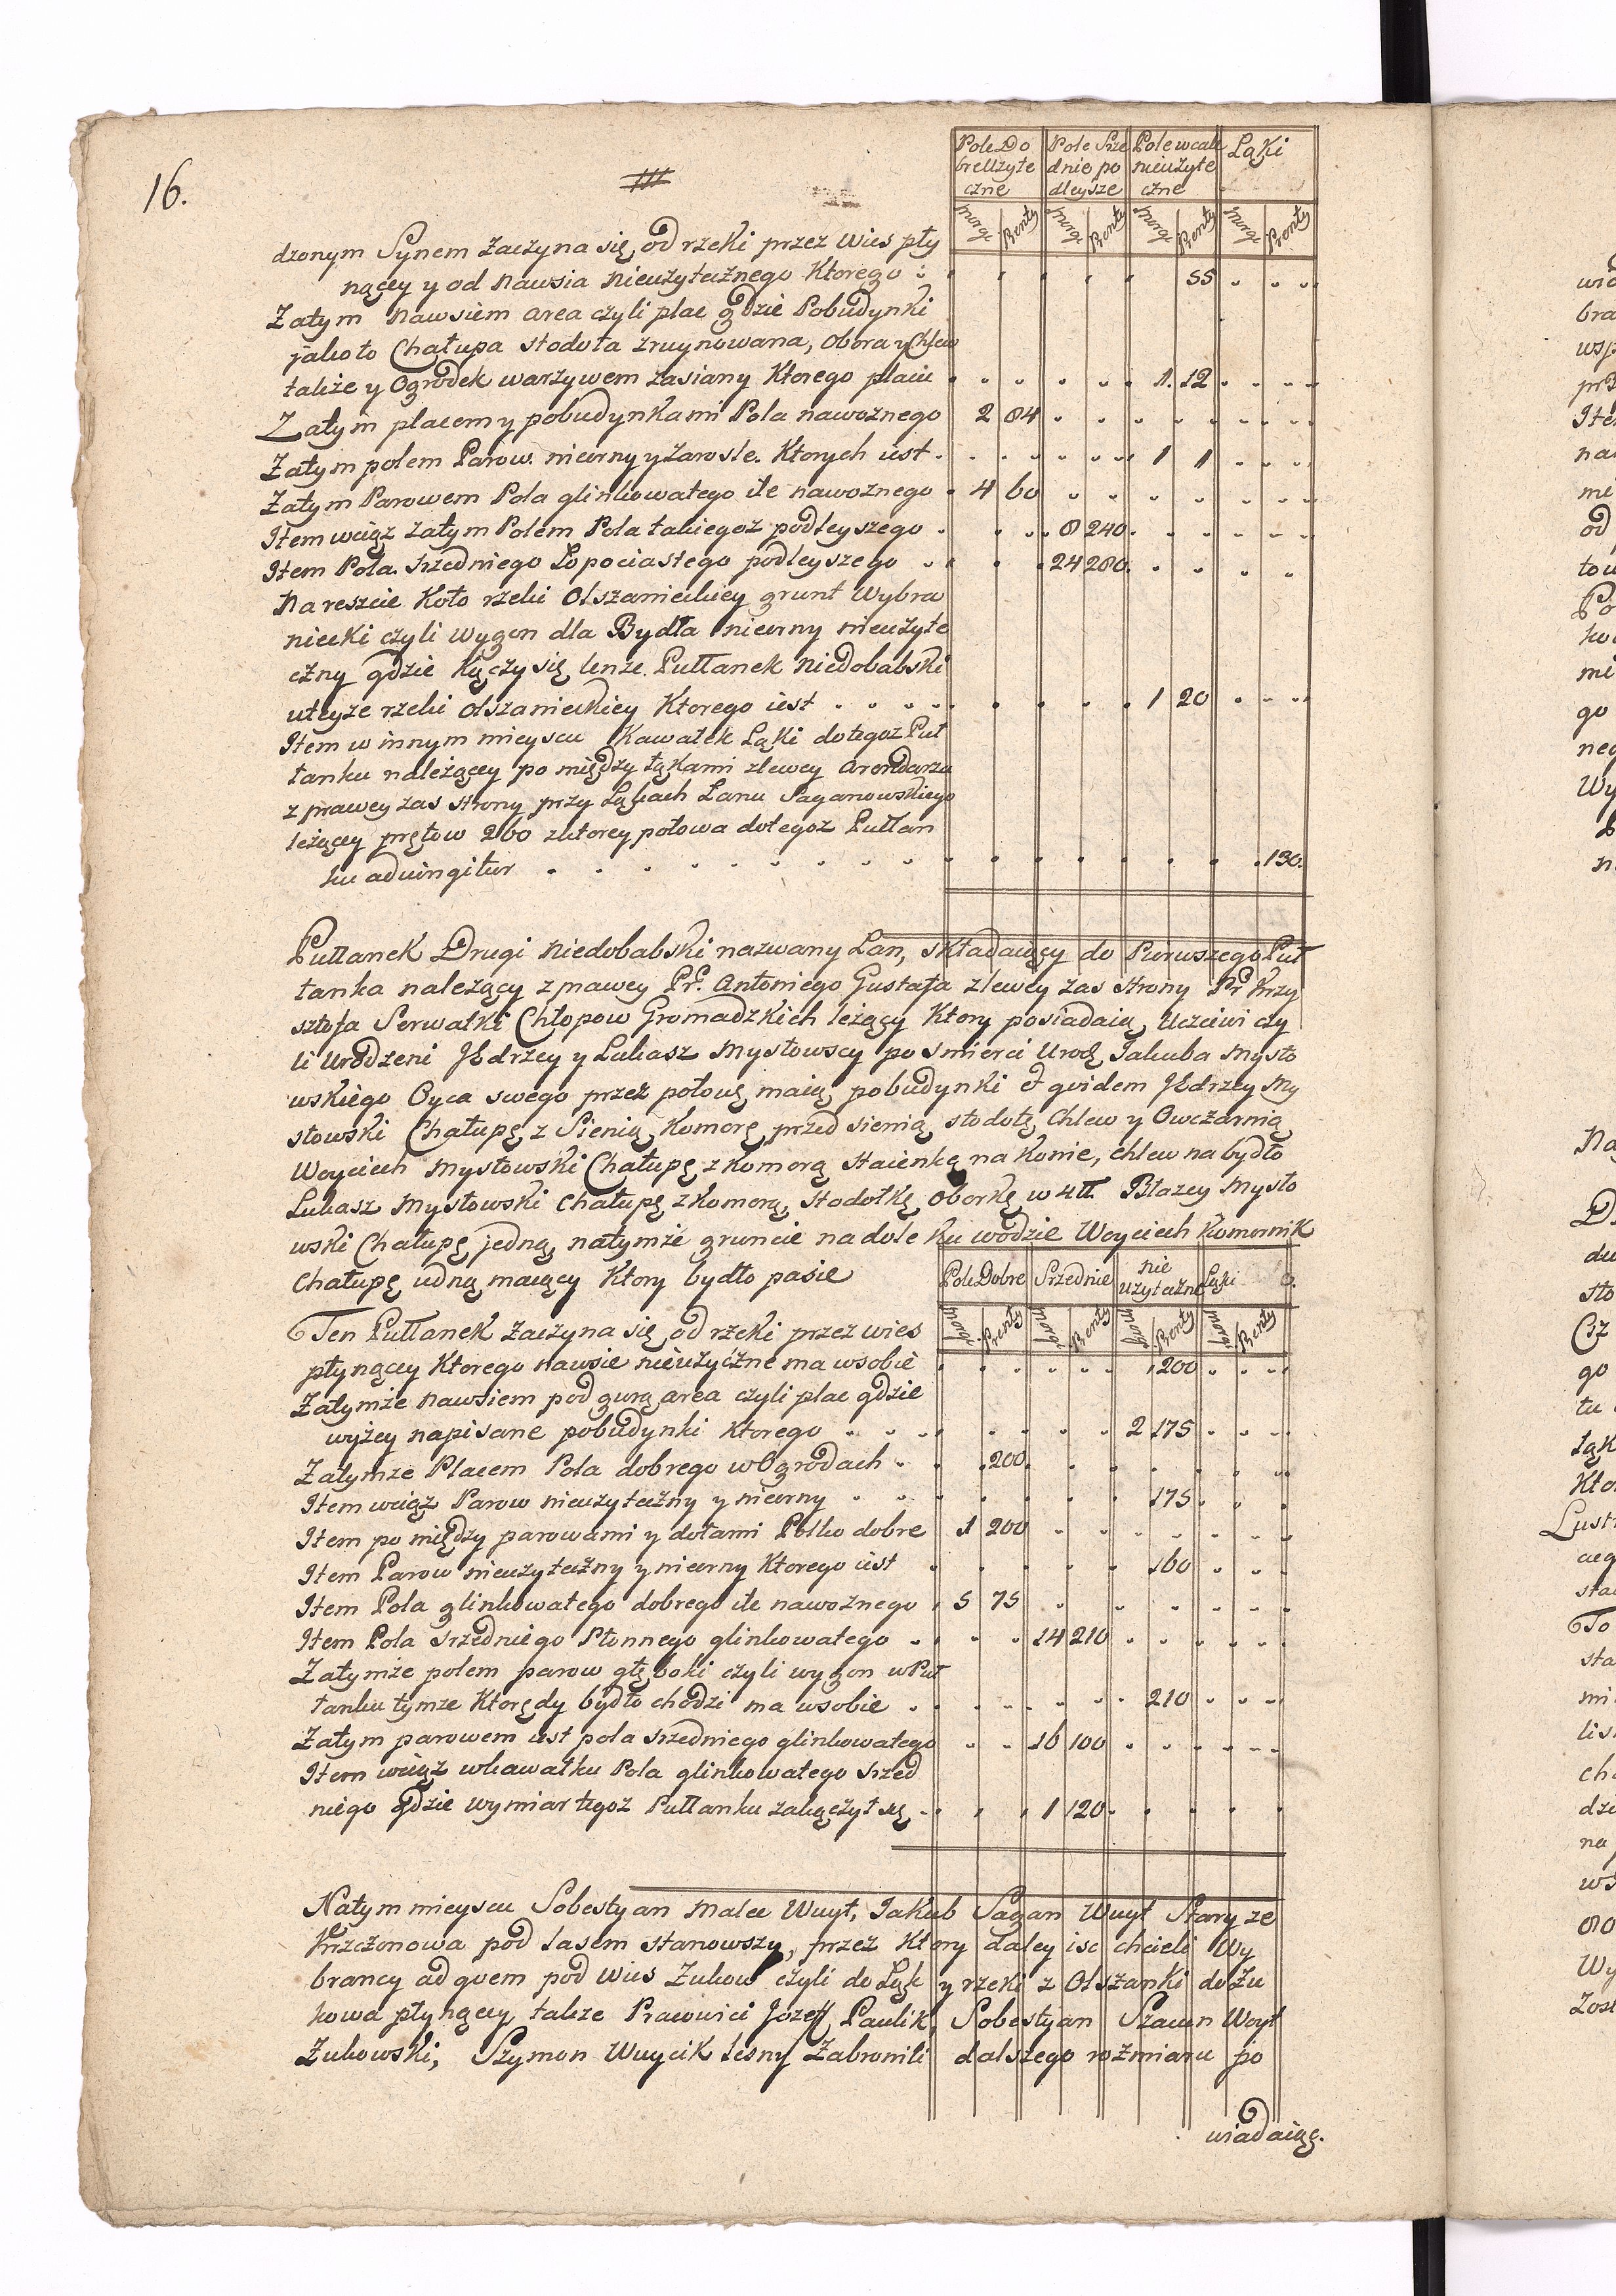 16.
Pole Do Pole Srze Pole w cale Łąki
bre Uzyte dnie po nieuzyte
czne dleysze czne
Morgi Pręnty Morgi Pręnty Morgi Pręnty Morgi Pręnty
dzonym Synem zaczyna się od rzeki przez wies pły
nącey y od nawsia nieuzytecznego Ktorego 55
Zatym nawsiem area czyli plac gdzie Pobudynki
jako to Chałupa stodoła zruynowana, Obora y Chlew
takze y Ogrodek warzywem zasiany Ktorego placu 1. 12
Zatym placem y pobudynkami Pola nawoznego 2 84
Zatym polem Parow nierny y Zarosle. Ktorych iest 1 1
Zatym Parowem Pola glinkowatego ile nawoznego 4 60
Item wciąz zatym Polem Pola takiegoz podleyszego 8 240
Item Pola srzedniego Łopociastego podleyszego 24 280
Nareszcie Koło rzeki Olszanieckiey grunt Wybra
niecki czyli wygon dla Bydła nierny nieuzyte
czny gdzie kączy się tenze Pułłanek Niedobabski
uteyze rzeki Olszanieckiey Ktorego iest 1 20
Item w innym mieyscu Kawałek Łąki do tegoz Puł
łanku należącey po między łąkami z lewey Arendarza
z prawey zas strony przy Łąkach Łanu Paganowskiego
leżącey prętow 260 z ktorey połowa do tegoz Pułłan
ku adiungitur 130.
Pułłanek Drugi Niedobabski nazwany Łan, składaiący do Pierwszego Puł
łanka nalezący z prawey Pr. Antoniego Gustafa z lewey zas strony Pr Krzy
sztofa Serwatki Chłopow Gromadzkich leżący Ktory posiadaią Uczciwi czy
li Urodzeni Jędrzey y Łukasz Mysłowscy po smierci Urod. Jakuba Mysło
wskiego Oyca swego przez połowę maią pobudynki et quidem Jędrzey My
słowski Chałupę z Sienią, Komorę przed sienią, stodołę, Chlew y Owczarnią
Woyciech Mysłowski Chałupę z komorą staienkę na Konie, chlew na bydło
Łukasz Mysłowski Chałupę z komorą, stodołkę oborkę, w 4tt Błazey Mysło
wski Chałupę jedną, natymże gruncie na dole ku wodzie Woyciech Komornik
Chałupę iedną maiący Ktory bydło pasie
Pole Dobre Srzednie nie uzyteczne Łąki
Morgi Pręnty Morgi Pręnty Morgi Pręnty Morgi Pręnty
Ten Pułłanek zaczyna się od rzeki przez wies
płynącey Ktorego nawsie nieuzyczne ma wsobie 200
Zatymże nawsiem pod gurą area czyli plac gdzie
wyżey napisane pobudynki Ktorego 2 175
Zatymze Placem Pola dobrego w Ogrodach 200
Item wciąz Parow nieuzyteczny y nierny 175
Item po między parowami y dołami Polko dobre 1 200
Item Parow nieuzyteczny y nierny Ktorego iest 160
Item Pola glinkowatego dobrego ile nawoznego 5 75
Item Pola srzedniego Płonnego glinkowatego 14 210
Zatymże polem parow głęboki czyli wygon w Puł
łanku tymze Ktorędy bydło chodzi ma wsobie 210
Zatym parowem iest pola srzedniego glinkowatego 16 100
Item wciąz w kawałku Pola glinkowatego srzed
niego gdzie wymiar tegoz Pułłanku zakączył się 1 120
Natym mieyscu Sobestyan Malec Wuyt, Jakub Sagan Wuyt Stary ze
Krzczonowa pod lasem stanowszy, przez Ktory daley isc chcieli Wy
brancy ad quem pod Wies Zukow czyli do Łąk y rzeki z Olszanki do Zu
kowa płynącey, takze Prawuici Jozeff Paulik, Sobestyan Szacun Woyt
Zukowski, Szymon Wuycik Lesny Zabronili dalszego rozmiaru po
wiadaiąc.